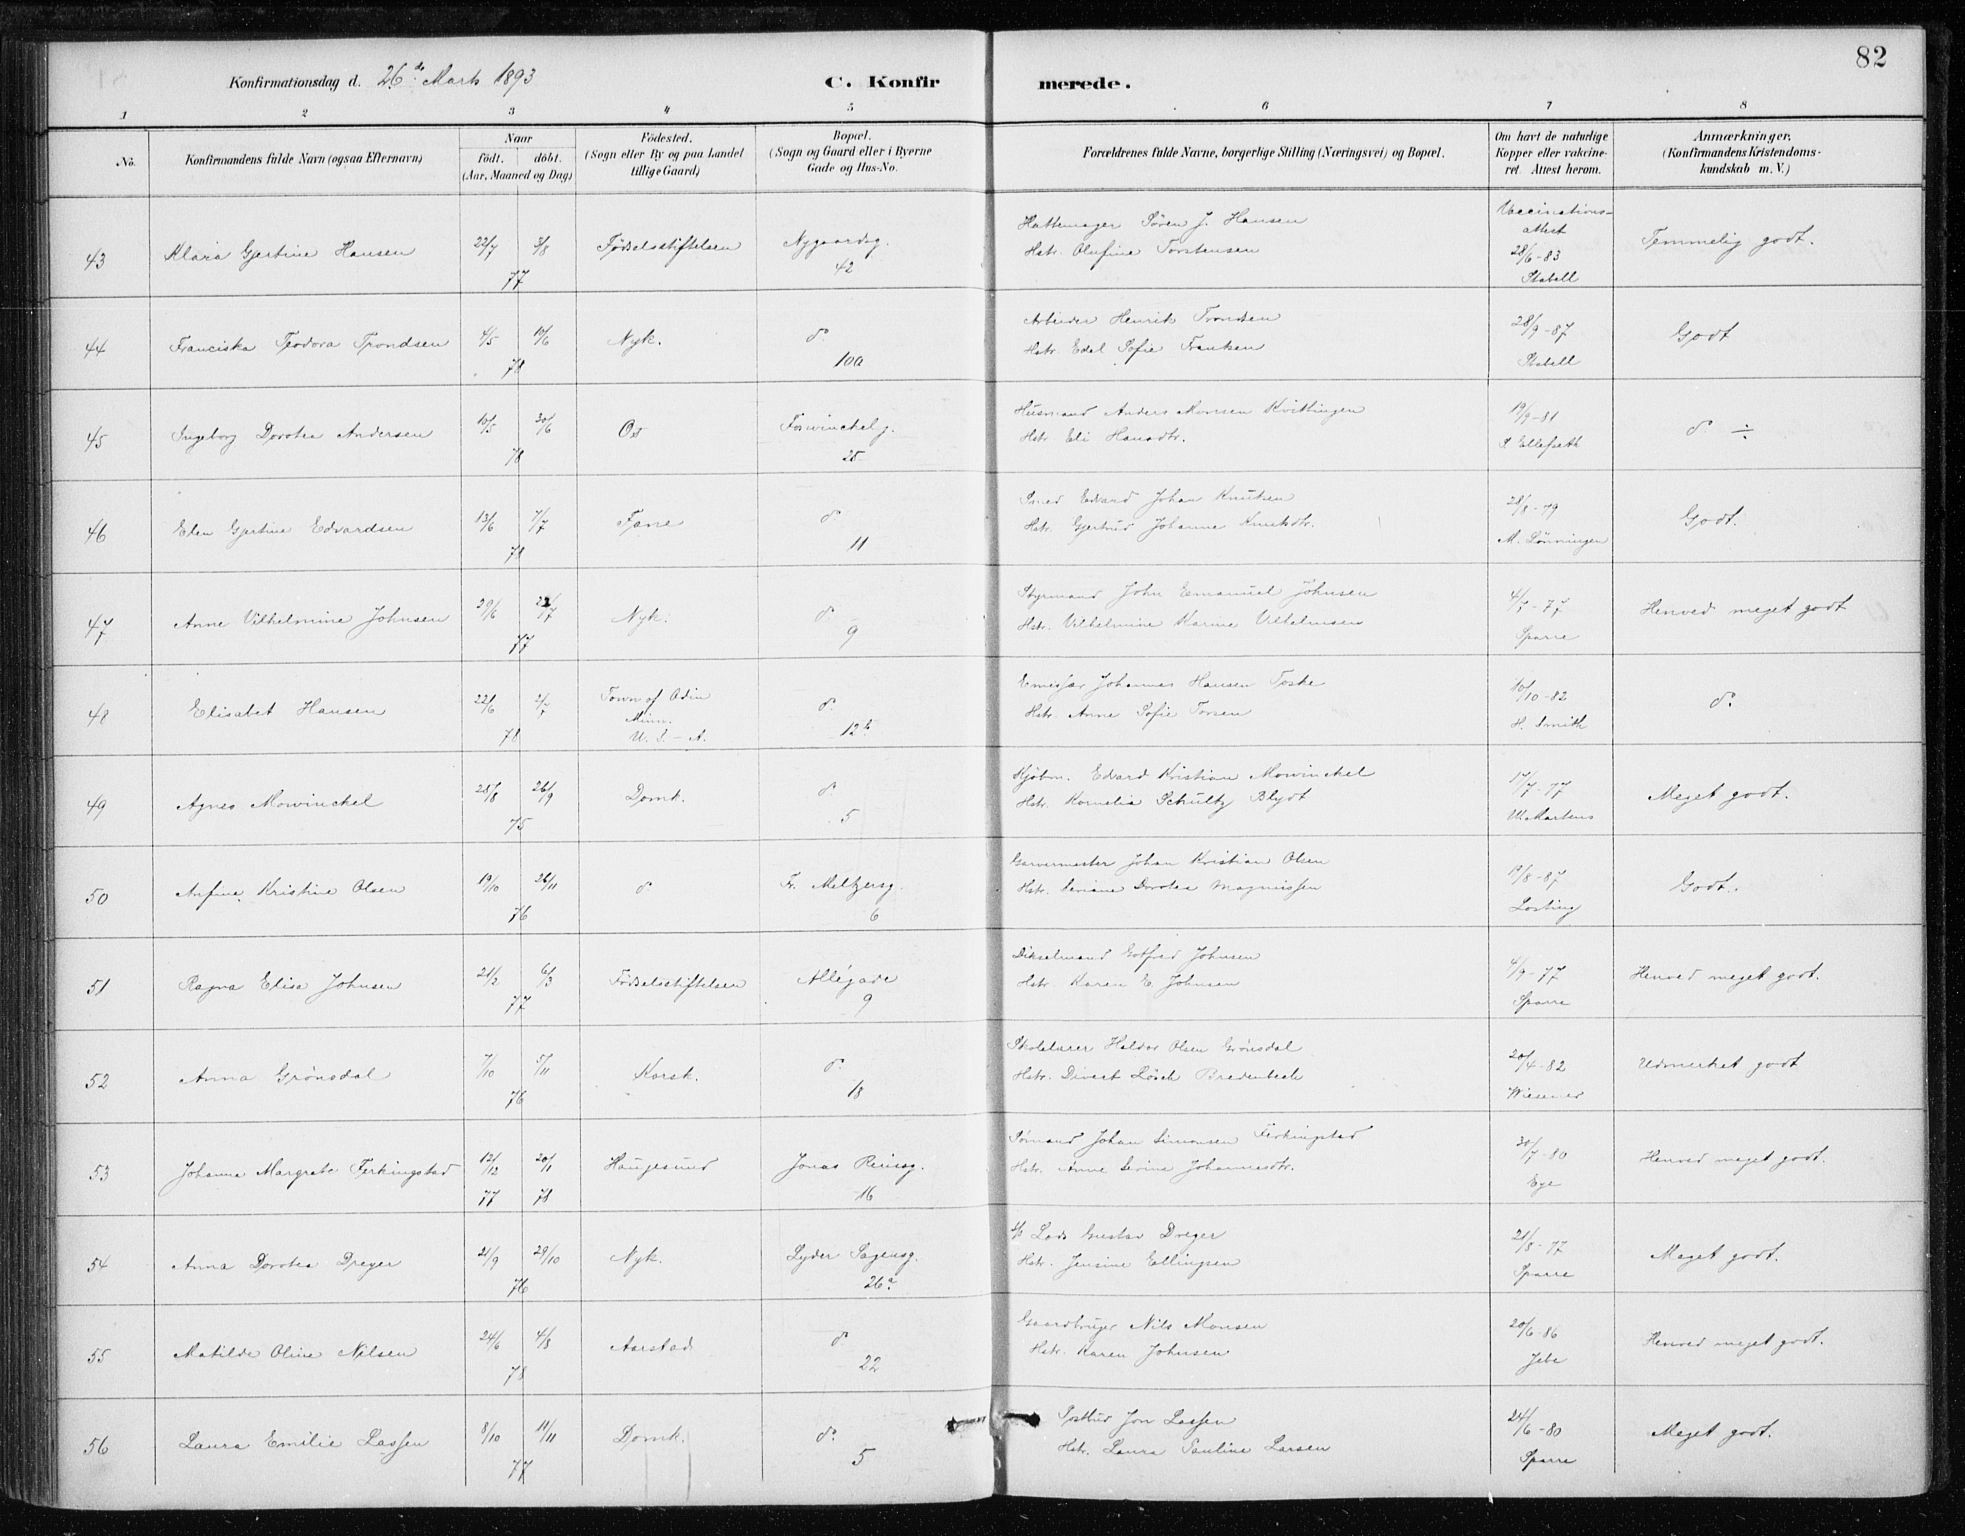 82
Konfirmationsdag d. 26de Marts 1893 C. Konfirmerede.
1 2 3 4 5 6 7 8
No. Konfirmandens fulde Navn (ogsaa Efternavn) Naar født. døbt. (Aar, Maaned og Dag) Fødested. (Sogn eller By og paa Landet tillige Gaard) Bopæl. (Sogn og Gaard eller i Byerne Gade og Hus-No. Forældrenes fulde Navne, borgerlige Stilling (Næringsvei) og Bopæl. Om havt de naturlige Kopper eller vakcineret. Attest herom. Anmærkninger. (Konfirmandens Kristendomskundskab m. V.)
43 Klara Gjertine Hansen 22/7 3/8 77 Fødselsstiftelsen Nygaardsg. 42
Hattemager Søren J. Hansen
Hstr. Olufine Torstensen
Vaccinationsattest 28/6-83 Stabell
Temmelig godt.
44 Franciska Teodora Trondsen 4/5 10/6 78 Nyk. do 10a
Arbeider Henrik Trondsen
Hstr. Edel Sofie Franken
28/9-87 Stabell
Godt
45 Ingeborg Dorotea Andersen 10/5 30/6 78 Os Foswinckelg. 28
Husmand Anders Monsen Kvittingen
Hstr. Eli Hansdtr.
19/9-81 Ellefseth
do ÷
46 Elen Gjertine Edvardsen 13/6 7/7 78 Fane do 11
Smed Edvard Johan Knutsen
Hstr. Gjertrud Johanne Knutsdtr.
28/8-79 M. Lønningen
Godt.
47 Anne Vilhelmine Johnsen 29/6 22/7 77 Nyk. do 9
Styrmand John Emanuel Johnsen
Hstr. Vilhelmine Karine Vilhelmsen
4/9-77 Sparre
Henved meget godt
48 Elisabet Hansen 22/6 2/7 78 Town of Odin Minn. U. S.-A. do 12b
Emissær Johannes Hansen Toske
Hstr. Anne Sofie Torsen
10/10-82 H. Smith
do
49 Agnes Mowinckel 28/8 26/9 75 Domk. do 5
Kjøbm. Edvard Kristian Mowinckel
Hstr. Kornelia Schultz Blydt
17/7-77 Martens
Meget godt.
50 Anfine Kristine Olsen 19/10 26/11 76 do Fr. Meltzersg. 6
Garvermester Johan Kristian Olsen
Hstr. Seviane Dorotea Magnussen
19/8-87 Losting
Godt.
51 Ragna Elise Johnsen 21/2 6/3 77 Fødselsstiftelsen Allégade 9
Dikselmand Gotfred Johnsen
Hstr. Karen E. Johnsen
4/9-77 Sparre
Henved meget godt.
52 Anna Grønsdal 7/10 5/11 76 Korsk. do 18
Skolelærer Haldor Olsen Grønsdal
Hstr. Divert Løsch Bredenbech
20/4-82 Wiesener
Udmerket godt
53 Johanne Margrete Ferkingstad 12/12 77 20/1 78 Haugesund Jonas Reinsg. 16
Sømand Johan Simonsen Ferkingstad
Hstr. Anne Serine Johannesdtr.
30/7-80 Eye
Henved meget godt.
54 Anna Dorotea Dreyer 21/9 29/10 76 Nyk. Lyder Sagensg. 26a
Lods Gustav Dreyer
Hstr. Jensine Ellingsen
21/8-77 Sparre
Meget godt.
55 Matilde Oline Nilsen 24/6 4/8 78 Aarstad do 22
Gaardbruger Nils Monsen
Hstr. Karen Johnsen
20/6-86 Jebe
Henved meget godt.
56 Laura Emilie Lassen 8/10 11/11 77 Domk. do 5
Postbud Jon Lassen
Hstr. Laura Pauline Larsen
24/6-80 Sparre
Meget godt.